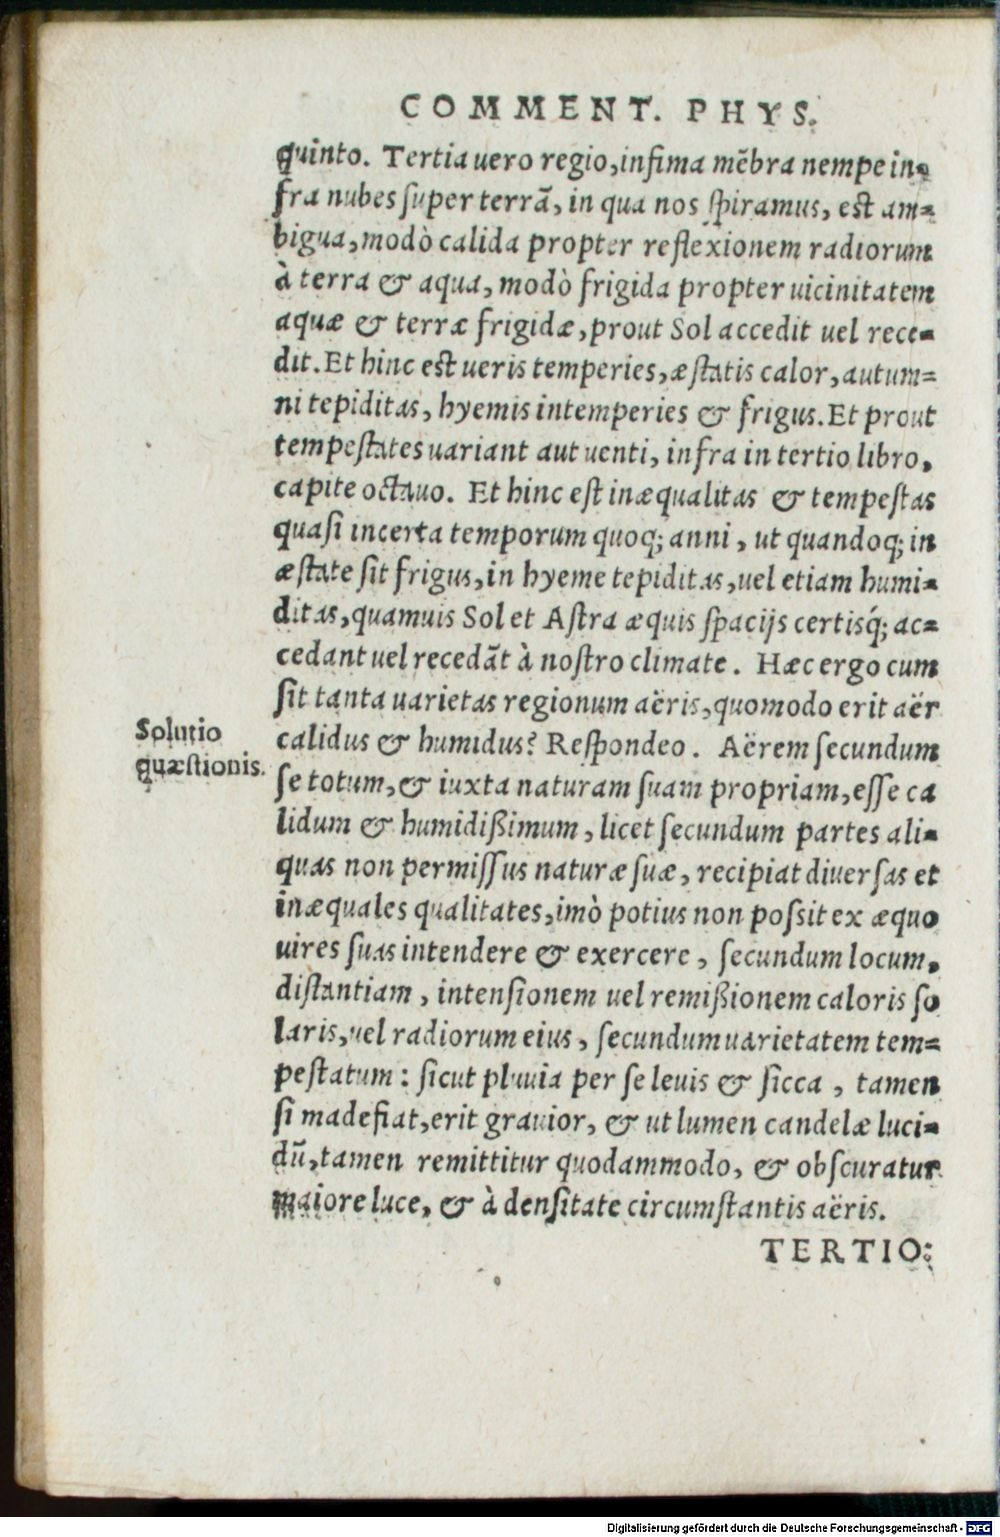 COMMENT. PHYS.
quinto. Tertia uero regio, infima mẽbra nempe in=
fra nubes ſuper terrã, in qua nos ſpiramus, eſt am=
bigua, modò calida propter reflexionem radiorum
à terra & aqua, modò frigida propter uicinitatem
aquæ & terræ frigidæ, prout Sol accedit uel rece=
dit. Et hinc eſt ueris temperies, æſtatis calor, autum=
ni tepiditas, hyemis intemperies & frigus. Et prout
tempeſtates uariant aut uenti, infra in tertio libro,
capite octauo. Et hinc eſt inæqualitas & tempeſtas
quaſi incerta temporum quoq; anni, ut quandoq; in
æſtate ſit frigus, in hyeme tepiditas, uel etiam humi=
ditas, quamuis Sol et Aſtra æquis ſpacijs certisq́; ac=
cedant uel recedãt à noſtro climate. Hæc ergo cum
ſit tanta uarietas regionum aëris, quomodo erit aër
Solutio
quæſtionis.
calidus & humidus? Reſpondeo. Aërem ſecundum
ſe totum, & iuxta naturam ſuam propriam, eſſe ca
lidum & humidißimum, licet ſecundum partes ali=
quas non permiſſus naturæ ſuæ, recipiat diuerſas et
inæquales qualitates, imò potius non poſsit ex æquo
uires ſuas intendere & exercere, ſecundum locum,
diſtantiam, intenſionem uel remißionem caloris ſo
laris, uel radiorum eius, ſecundum uarietatem tem=
peſtatum: ſicut pluuia per ſe leuis & ſicca, tamen
ſi madefiat, erit grauior, & ut lumen candelæ luci=
dũ, tamen remittitur quodammodo, & obſcuratur
maiore luce, & à denſitate circumſtantis aëris.
TERTIO:
Digitalisierung gefördert durch die Deutsche Forschungsgemeinschaft - DFG